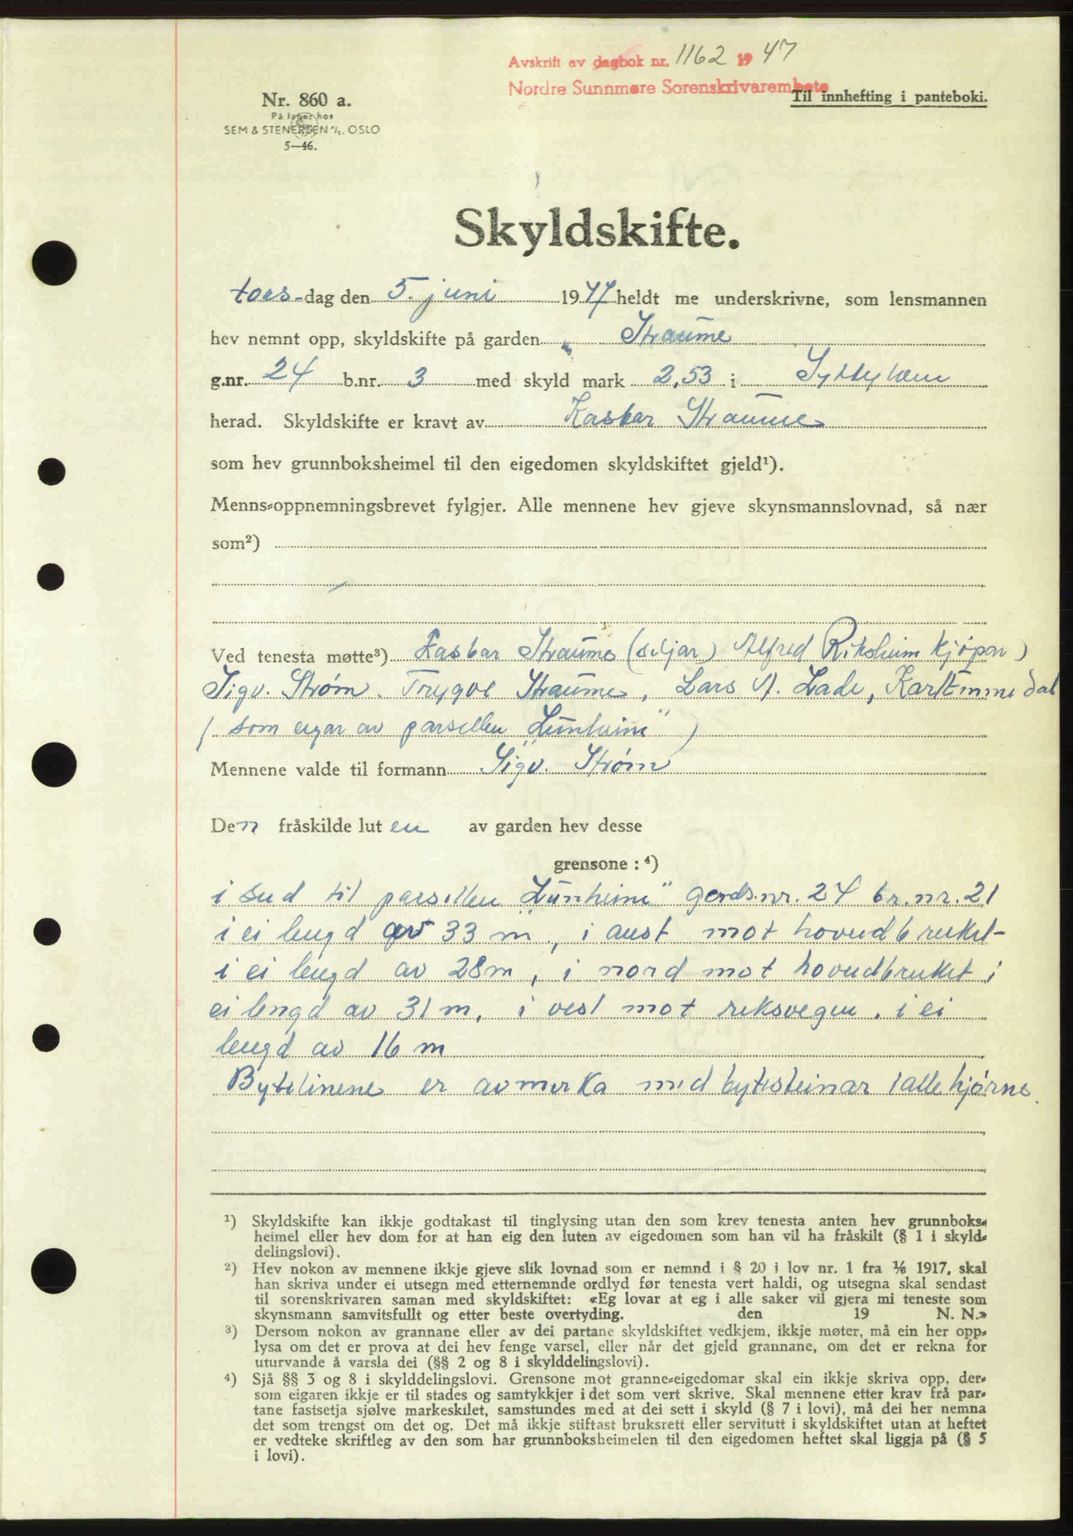 Avskrift av dagbok nr. 1162 1947
Nordre Sunnmøre Sorenskrivarembete
Til innhefting i panteboki.
Nr. 860 a.
På lager hos
SEM & STENERSEN A/S. OSLO
5—46.
Skyldskifte.
tors-dag den 5. juni 1947 heldt me underskrivne, som lensmannen
hev nemnt opp, skyldskifte på garden Straume
g.nr. 24 b.nr. 3 med skyld mark 2,53 i Sykkylven
herad. Skyldskifte er kravt av Kasbar Straume
som hev grunnboksheimel til den eigedomen skyldskiftet gjeld¹).
Menns-oppnemningsbrevet fylgjer. Alle mennene hev gjeve skynsmannslovnad, så nær
som²)
Ved tenesta møtte³) Kasbar Straume (seljar) Alfred Riksheim kjøpar)
Sigv. Strøm. Trygve Straume, Lars A. Lade, Karl Emmedal
( som eigar av parsellen "Lünheim" )
Mennene valde til formann Sigv. Strøm
Den fråskilde luten av garden hev desse
grensone : ⁴)
i sud til parsellen "Lünheim" gards.nr. 24 br.nr. 21
i ei lengd av 33 m, i aust mot hovudbruket-
i ei lengd av 28m, i nord mot hovudbruket i
ei lengd av 31 m, i vest mot riksvegen. i ei
lengd av 16 m
Bytelinene er avmerka med bytesteinar i alle hjørne.
¹) Skyldskifte kan ikkje godtakast til tinglysing utan den som krev tenesta anten hev grunnboks-
heimel eller hev dom for at han eig den luten av eigedomen som han vil ha fråskilt (§ 1 i skyld-
delingslovi).
²) Hev nokon av mennene ikkje gjeve slik lovnad som er nemnd i § 20 i lov nr. 1 fra ⅙ 1917, skal
han skriva under ei utsegn med etternemnde ordlyd før tenesta vert haldi, og utsegna skal sendast
til sorenskrivaren saman med skyldskiftet: «Eg lovar at eg i alle saker vil gjera mi teneste som
skynsmann samvitsfullt og etter beste overtyding. den 19 N. N.»
³) Dersom nokon av grannane eller av dei partane skyldskiftet vedkjem, ikkje møter, må ein her opp-
lysa om det er prova at dei hev fenge varsel, eller når det gjeld grannane, om det er rekna for
uturvande å varsla dei (§§ 2 og 8 i skylddelingslovi).
⁴) Sjå §§ 3 og 8 i skylddelingslovi. Grensone mot granne-eigedomar skal ein ikkje skriva opp, der-
som eigaren ikkje er til stades og samtykkjer i det som vert skrive. Skal mennene etter krav frå par-
tane fastsetja sjølve markeskilet, samstundes med at dei sett i skyld (§ 7 i lovi), må dei her nemna
det som trengst om det og. Det må ikkje stiftast bruksrett eller servitutt i skyldskiftet utan at heftet
er vedteke skriftleg av den som har grunnboksheimelen til den eigedomen heftet skal liggja på (§ 5
i lovi).